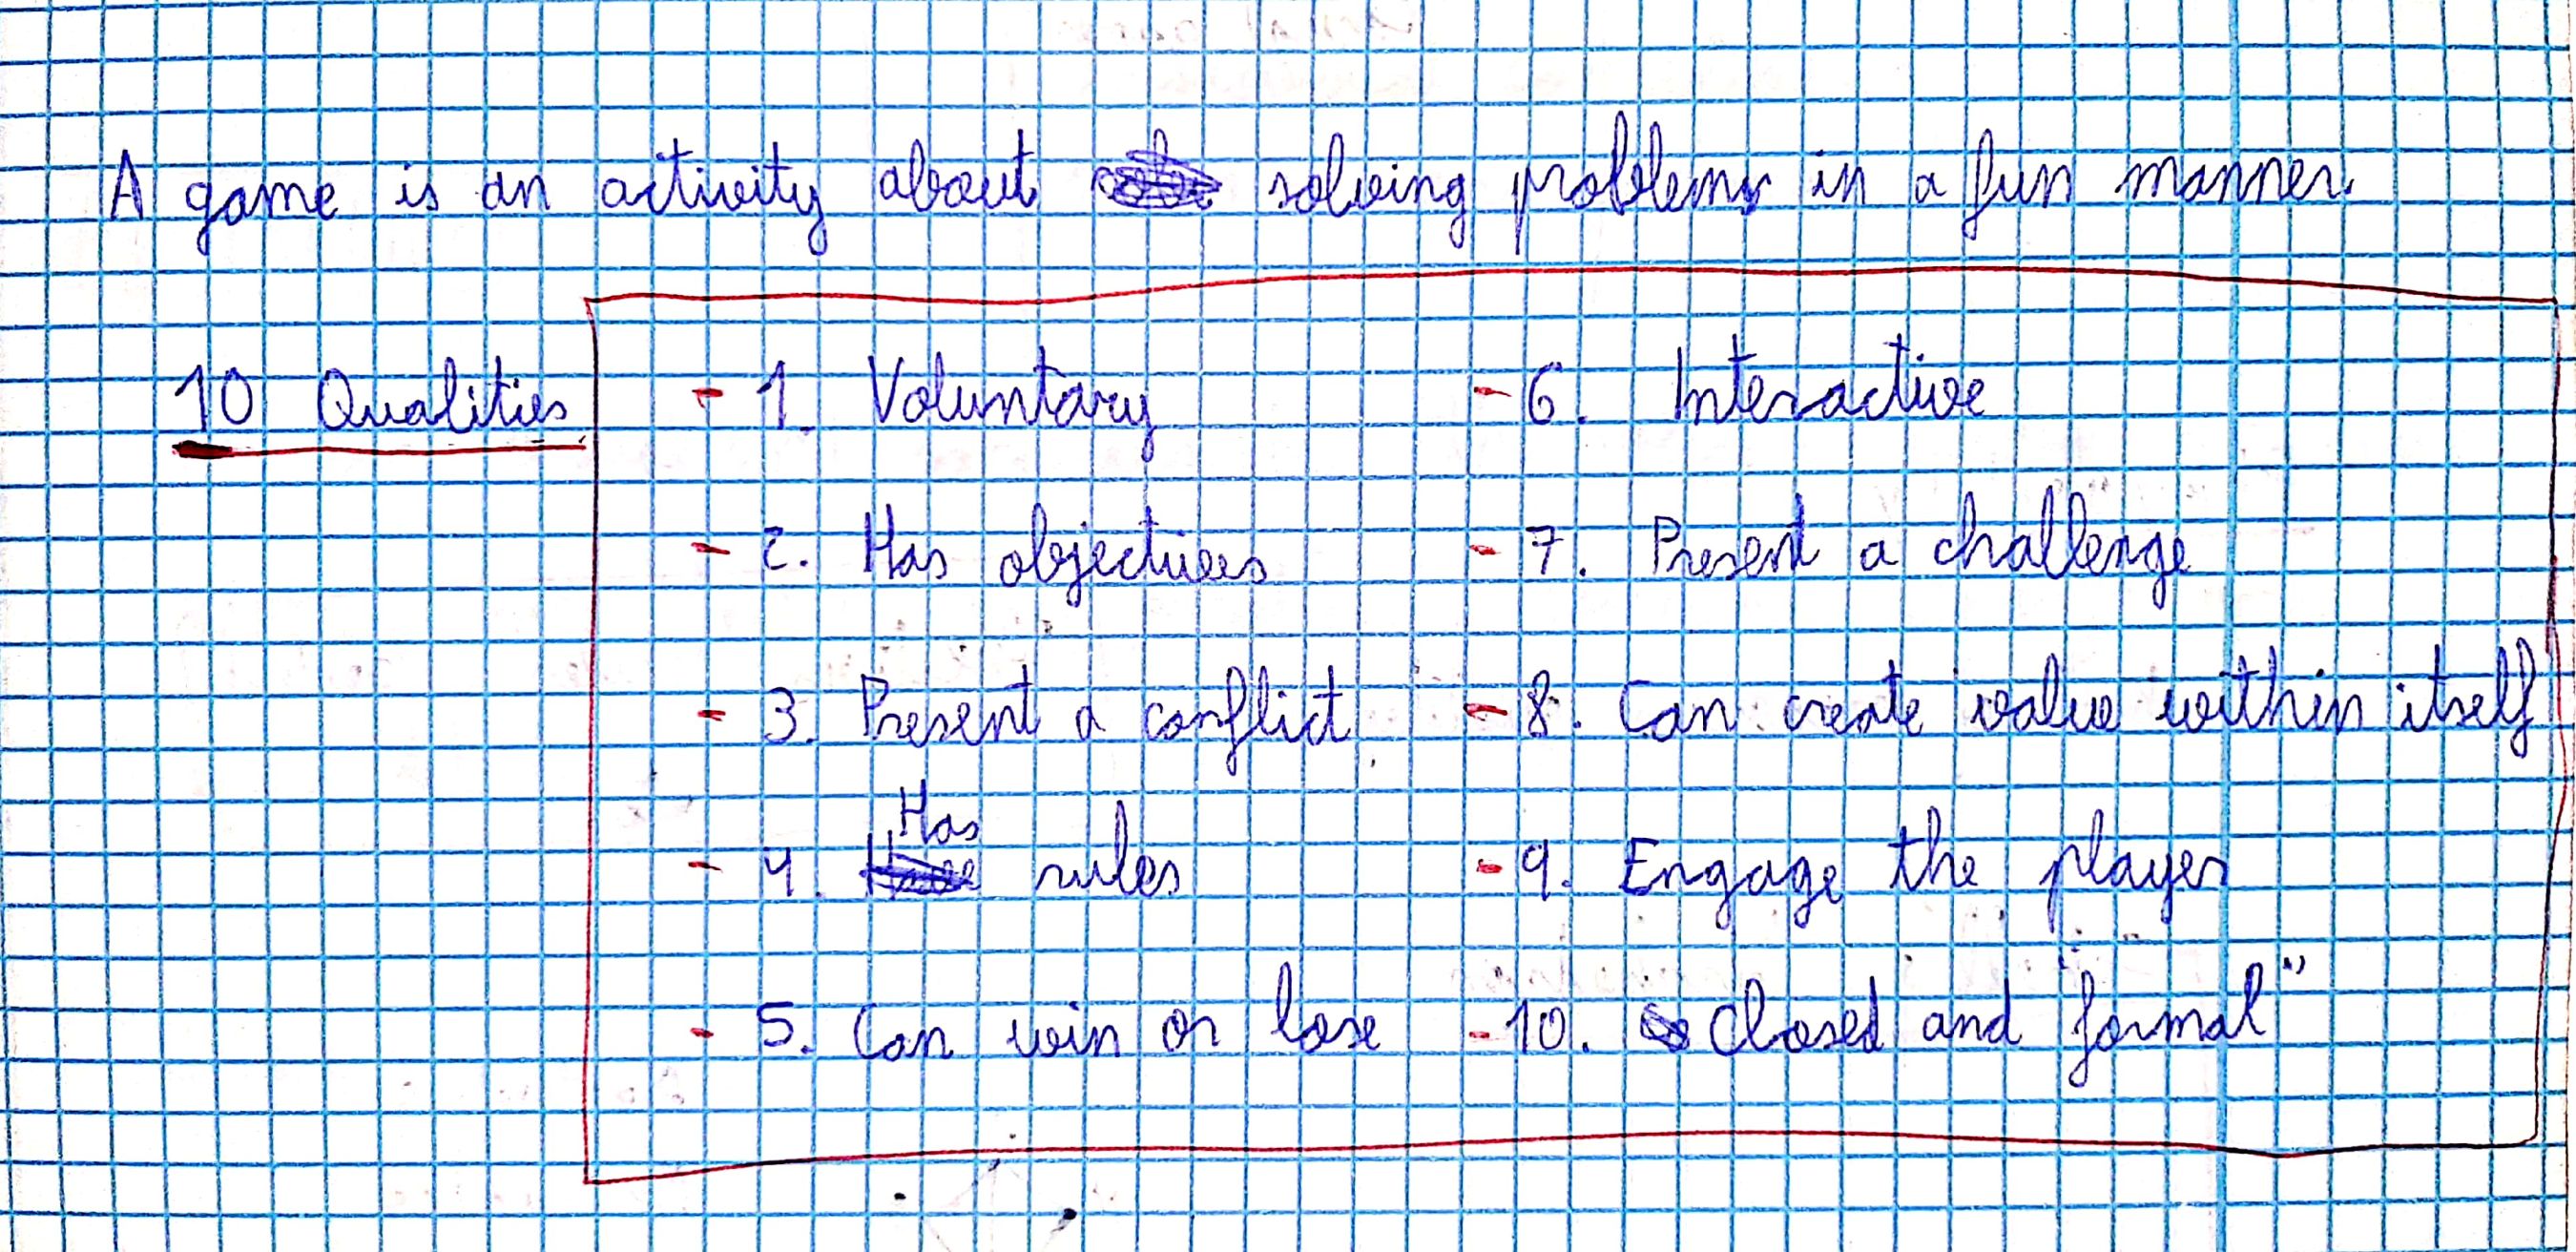 A game is an activity about solving problems in a fun manner.
10 Qualities
- 1. Voluntary
- 2. Has objectives
- 3. Present a conflict
- 4. Has rules
- 5. Can win or lose
- 6. Interactive
- 7. Present a challenge
- 8. Can create value within itself
- 9. Engage the player
- 10. Closed and formal"